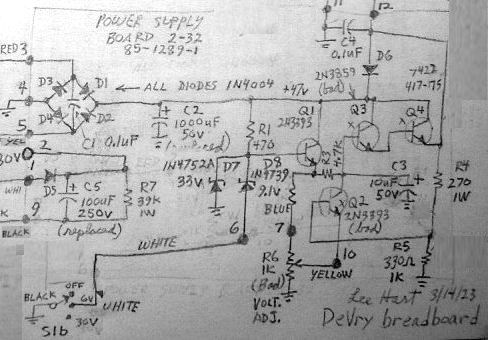 POWER SUPPLY
BOARD 2-32
85-1289-1
11
12
C4
0.1uF
D6
RED 3
D3
D1
ALL DIODES 1N4004
+47V
2N3859
(bad)
7422
417-75
4
D4
D2
C2
1000uF
50V
Q1
2N3393
Q3
Q4
5
YEL
C1 0.1uF
R1
470
2
30V
1
1N4752A
33V
D7
D8
1N4739
9.1V
R3
4.7K
C3
10uF
50V
R4
270
1W
WHI
D5
C5
100uF
250V
(replaced)
R7
39K
1W
BLUE
Q2
2N3393
(bad)
9
BLACK
6
7
WHITE
R6
1K
(Bad)
VOLT.
ADJ.
10
YELLOW
R5
330Ω
1K
OFF
BLACK
6V
WHITE
30V
S1b
Lee Hart 3/14/23
DeVry breadboard